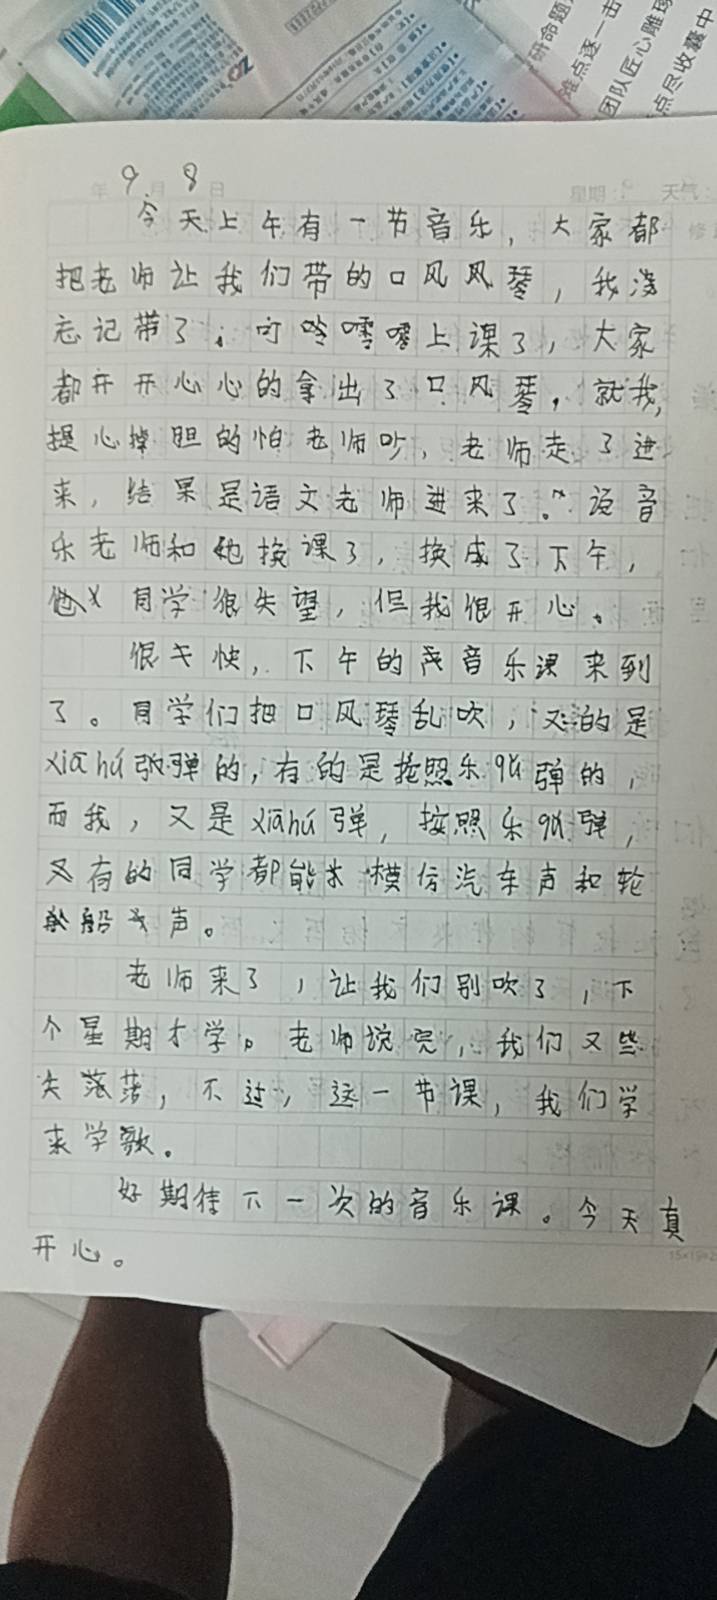 研命题
难点逐一击
团队匠心雕琢
点尽收囊中
年 9 月 8 日 星期: 天气:
今天上午有一节音乐，大家都
把老师让我们带的口风风琴，我没
忘记带了。叮呤嘡嘡上课了，大家
都开开心心的拿出了口风琴，就我，
提心掉胆的怕老师吵，老师走了进
来，结果是语文老师进来了。说音
乐老师和她换课了，换成了下午，
同学很失望，但我很开心。
很快，下午的音乐课来到
了。同学们把口风琴乱吹，又的是
xiā hú 弹的，有的是按照乐 qu 弹的，
而我，又是 xiā hú 弹，按照乐 qu 弹，
又有的同学都能模仿汽车声和轮
船声。
老师来了，让我们别吹了，下
个星期才学。老师说完，我们又些
失落落，不过，这一节课，我们学
来学歌。
好期待下一次的音乐课。今天真
开心。